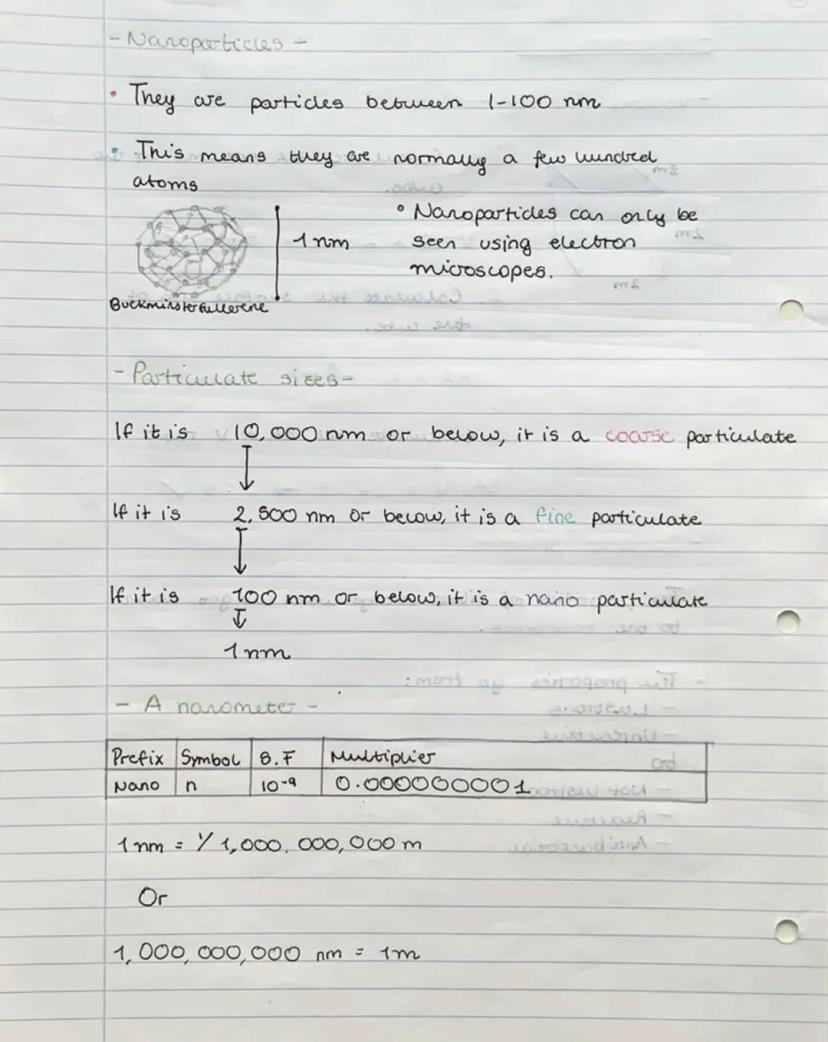 - Nanoparticles -
• They are particles between 1-100 nm
• This means they are normally a few hundred
atoms
1 nm
• Nanoparticles can only be
seen using electron
microscopes.
Buckminsterfullerene
- Particulate sizes -
If it is 10,000 nm or below, it is a coarse particulate
If it is 2,500 nm or below, it is a fine particulate
If it is 100 nm or below, it is a nano particulate
1 nm
- A nanometer -
Prefix Symbol S.F Multiplier
Nano n 10⁻⁹ 0.000000001
1 nm = 1/ 1,000,000,000 m
Or
1,000,000,000 nm = 1m